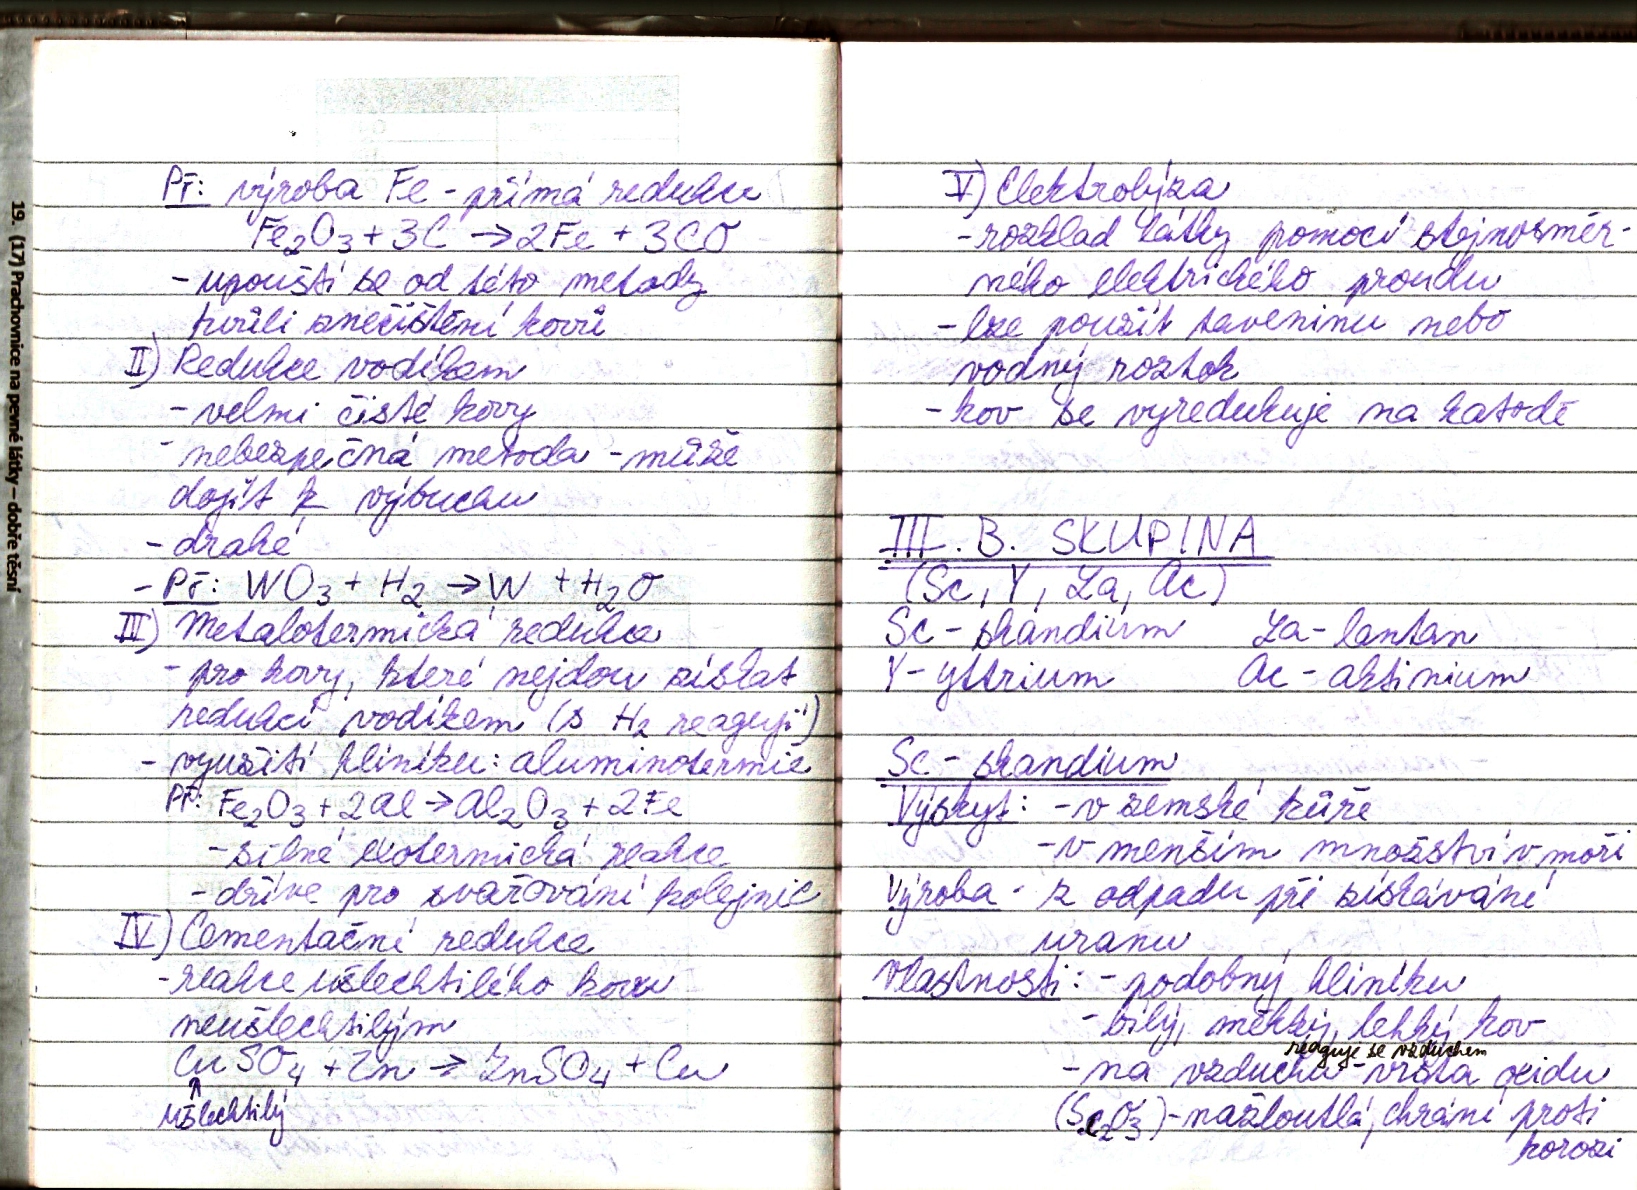 19. (17) Prachovnice na pevné látky – dobře těsní
Př: výroba Fe - přímá redukce
Fe2O3 + 3C → 2Fe + 3CO
- upouští se od této metody
kvůli znečištění kovů
II) Redukce vodíkem
- velmi čisté kovy
- nebezpečná metoda - může
dojít k výbuchu
- drahé
- Př: WO3 + H2 → W + H2O
III) Metalotermická redukce
- pro kovy, které nejdou získat
redukcí vodíkem (s H2 reagují)
- využití hliníku: aluminotermie
Př: Fe2O3 + 2Al → Al2O3 + 2Fe
- silně exotermická reakce
- dříve pro svařování kolejnic
IV) Cementační redukce
- reakce ušlechtilého kovu
neušlechtilým
CuSO4 + Zn → ZnSO4 + Cu
↑
ušlechtilý
V) Elektrolýza
- rozklad látky pomocí stejnosměr-
ného elektrického proudu
- lze použít taveninu nebo
vodný roztok
- kov se vyredukuje na katodě
III. B. SKUPINA
(Sc, Y, La, Ac)
Sc - skandium La - lantan
Y - yttrium Ac - aktinium
Sc - skandium
Výskyt: - v zemské kůře
- v menším množství v moři
Výroba - z odpadu při získávání
uranu
Vlastnosti: - podobný hliníku
- bílý, měkký, lehký kov
reaguje se vzduchem
- na vzduchu - vrsta oxidu
(Sc2O3) - nažloutlá, chrání proti
korozi